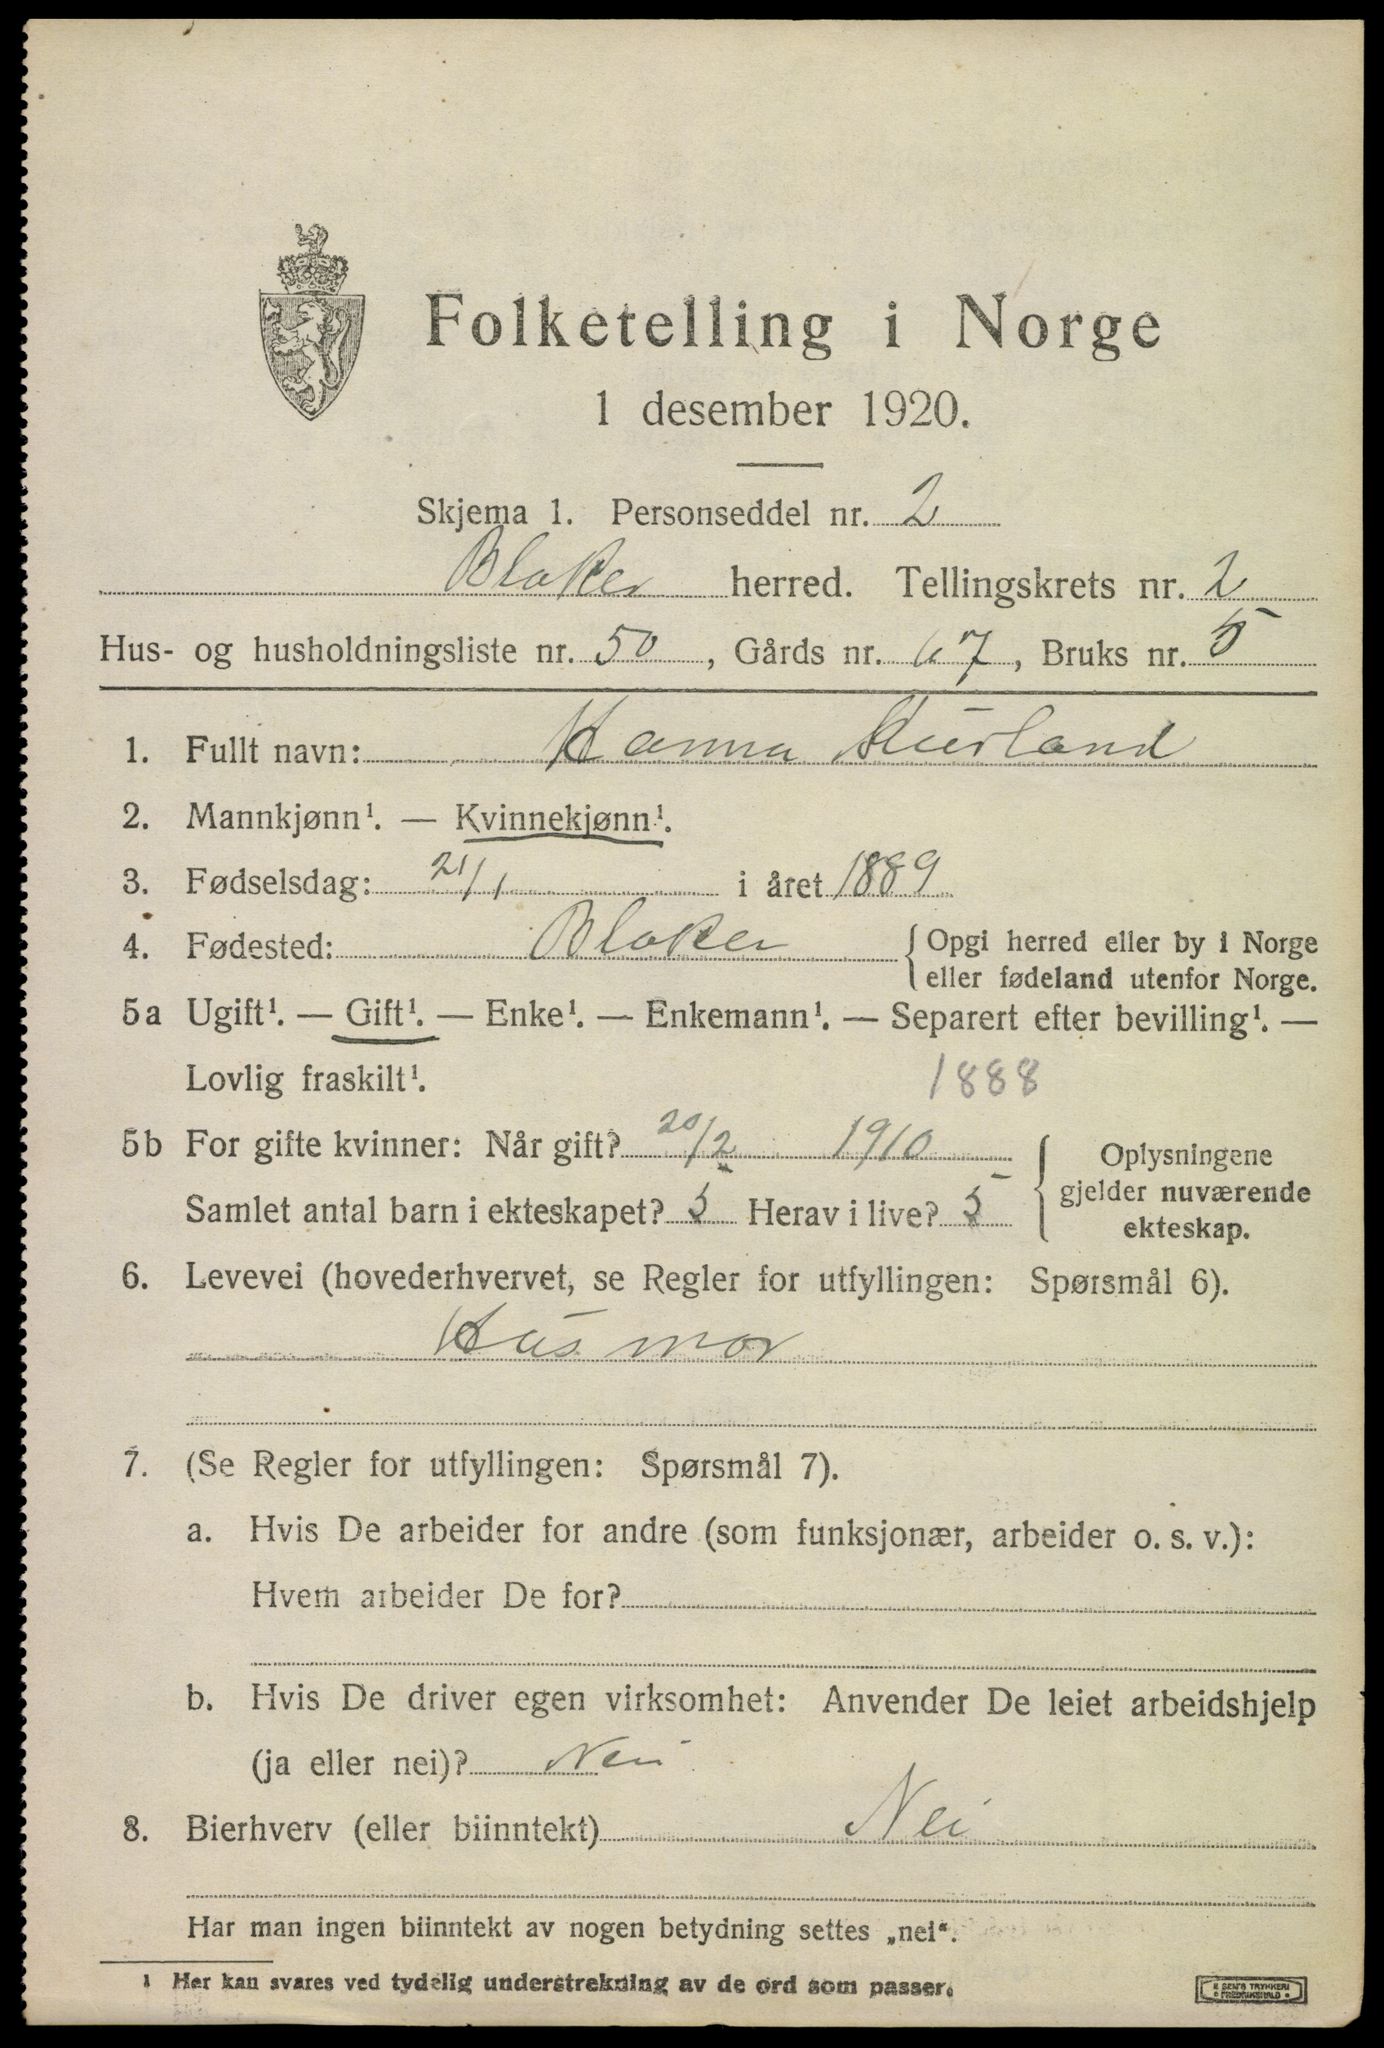 Folketelling i Norge
1 desember 1920.
Skjema 1. Personseddel nr. 2
Blaker herred. Tellingskrets nr. 2
Hus- og husholdningsliste nr. 50, Gårds nr. 67, Bruks nr. 5
1. Fullt navn: Hanna
2. Mannkjønn¹. — Kvinnekjønn¹.
3. Fødselsdag: 21/1 i året 1889
4. Fødested: Blaker { Opgi herred eller by i Norge
eller fødeland utenfor Norge.
5a Ugift¹. — Gift¹. — Enke¹. — Enkemann¹. — Separert efter bevilling¹. —
Lovlig fraskilt¹. 1888
5b For gifte kvinner: Når gift? 20/2 1910
Samlet antal barn i ekteskapet? 5 Herav i live? 5
{ Oplysningene
gjelder nuværende
ekteskap.
6. Levevei (hovederhvervet, se Regler for utfyllingen: Spørsmål 6).
Husmor
7. (Se Regler for utfyllingen: Spørsmål 7).
a. Hvis De arbeider for andre (som funksjonær, arbeider o. s. v.):
Hvem arbeider De for?
b. Hvis De driver egen virksomhet: Anvender De leiet arbeidshjelp
(ja eller nei)? Nei
8. Bierhverv (eller biinntekt) Nei
Har man ingen biinntekt av nogen betydning settes „nei“.
¹ Her kan svares ved tydelig understrekning av de ord som passer.